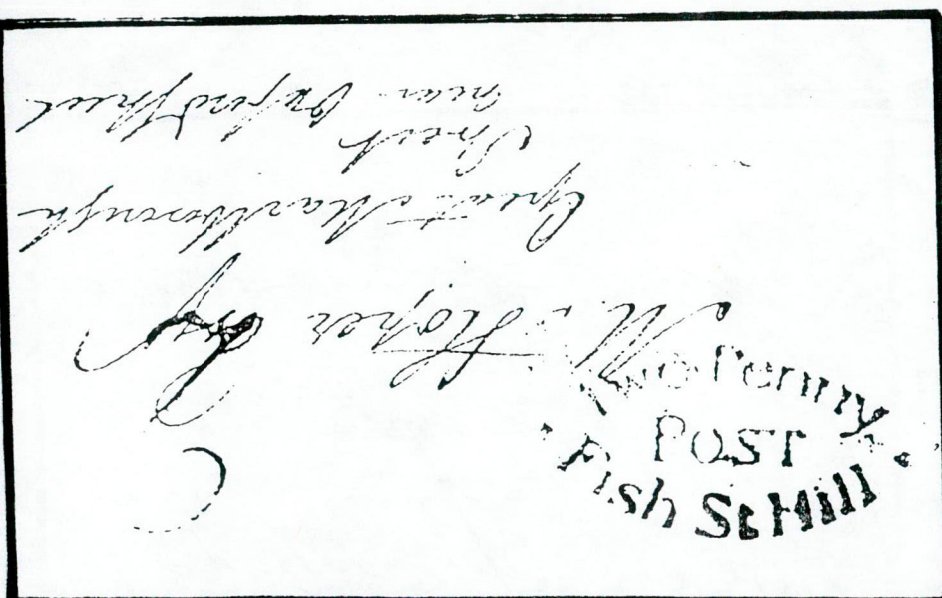 Esq
Great Marlborough
Street
near Oxford Street
Two Penny
POST
Fish St Hill